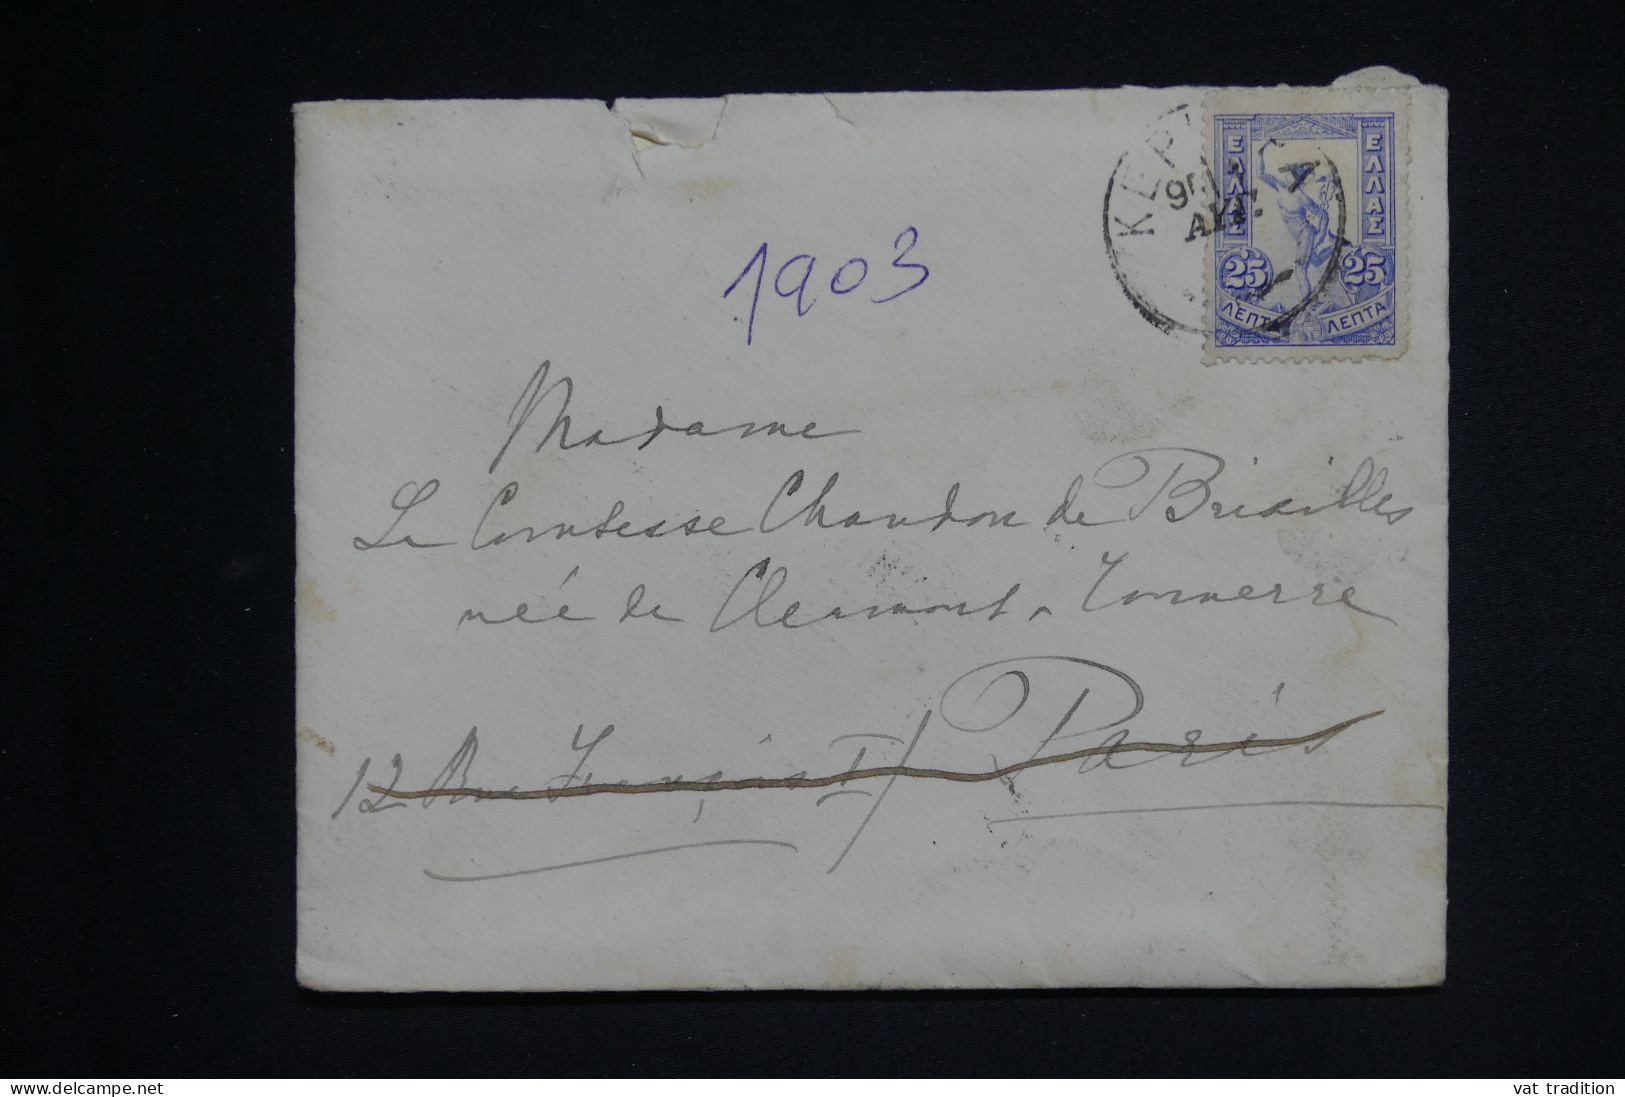 ΕΛΛΑΣ ΕΛΛΑΣ
25 25
ΛΕΠΤΑ ΛΕΠΤΑ
ΑΥΓ.
1903
Madame
La Comtesse Chandon de Briailles
née de Clermont-Tonnerre
12 Rue François I/ Paris
www.delcampe.net
vat tradition